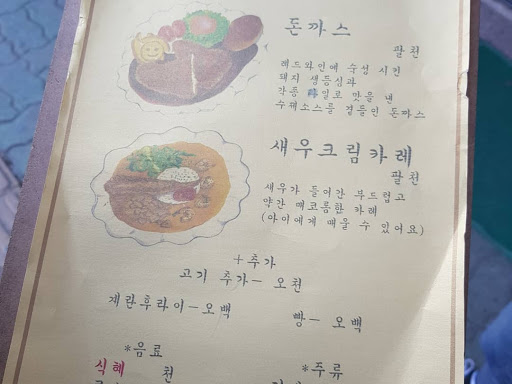 돈까스
팔천
레드와인에 숙성 시킨
돼지 생등심과
각종 과일로 맛을 낸
수제소스를 곁들인 돈까스
새우크림카레
팔천
새우가 들어간 부드럽고
약간 매코름한 카레
(아이에게 매울 수 있어요)
+추가
고기 추가 - 오천
계란후라이 - 오백
빵 - 오백
*음료
*주류
식혜 천